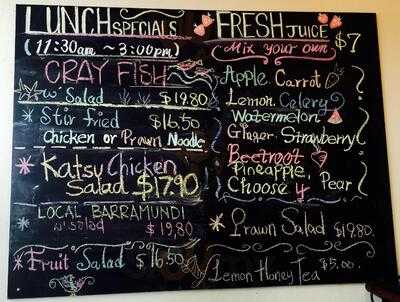 LUNCH SPECIALS
(11:30am ~ 3:00pm)
CRAY FISH
w' Salad $19.80
* Stir fried $16.50
Chicken or Prawn Noodle
* Katsu Chicken
Salad $17.90
LOCAL BARRAMUNDI
* w' salad $19.80
* Fruit Salad $16.50
FRESH JUICE
Mix your own $7
Apple Carrot
Lemon Celery
Watermelon
Ginger Strawberry
Beetroot
Pineapple Pear
Choose 4
* Prawn Salad $19.80
Lemon Honey Tea $5.00